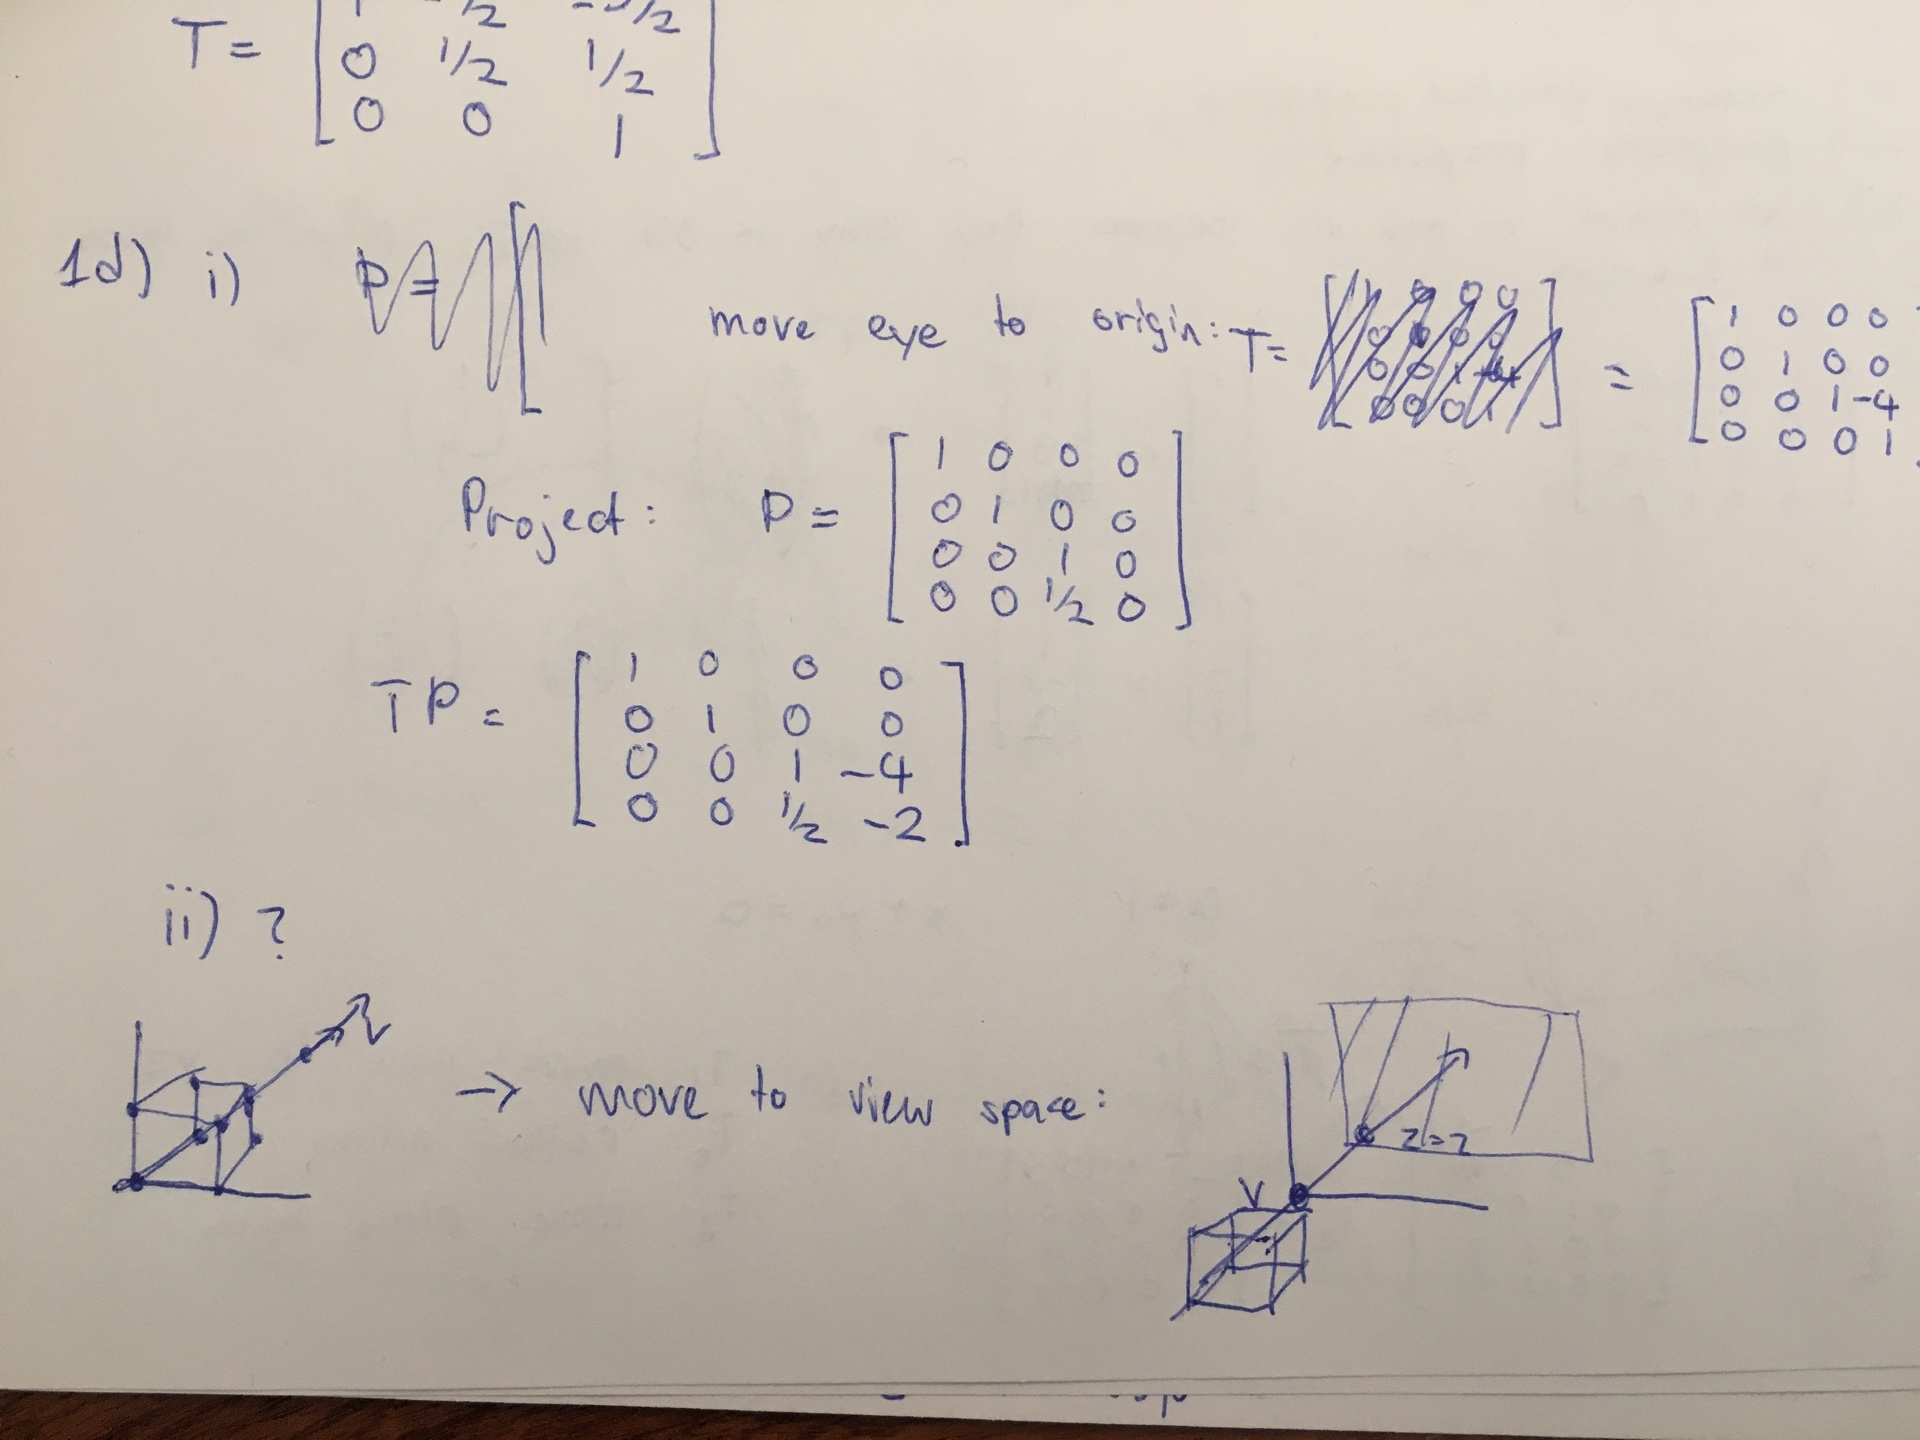 T = [ 1 -1/2 -3/2
0 1/2 1/2
0 0 1 ]
1d) i) P = [
move eye to origin: T = = [ 1 0 0 0
0 1 0 0
0 0 1 -4
0 0 0 1
Project: P = [ 1 0 0 0
0 1 0 0
0 0 1 0
0 0 1/2 0 ]
TP = [ 1 0 0 0
0 1 0 0
0 0 1 -4
0 0 1/2 -2 ]
ii) ?
→ move to view space:
V